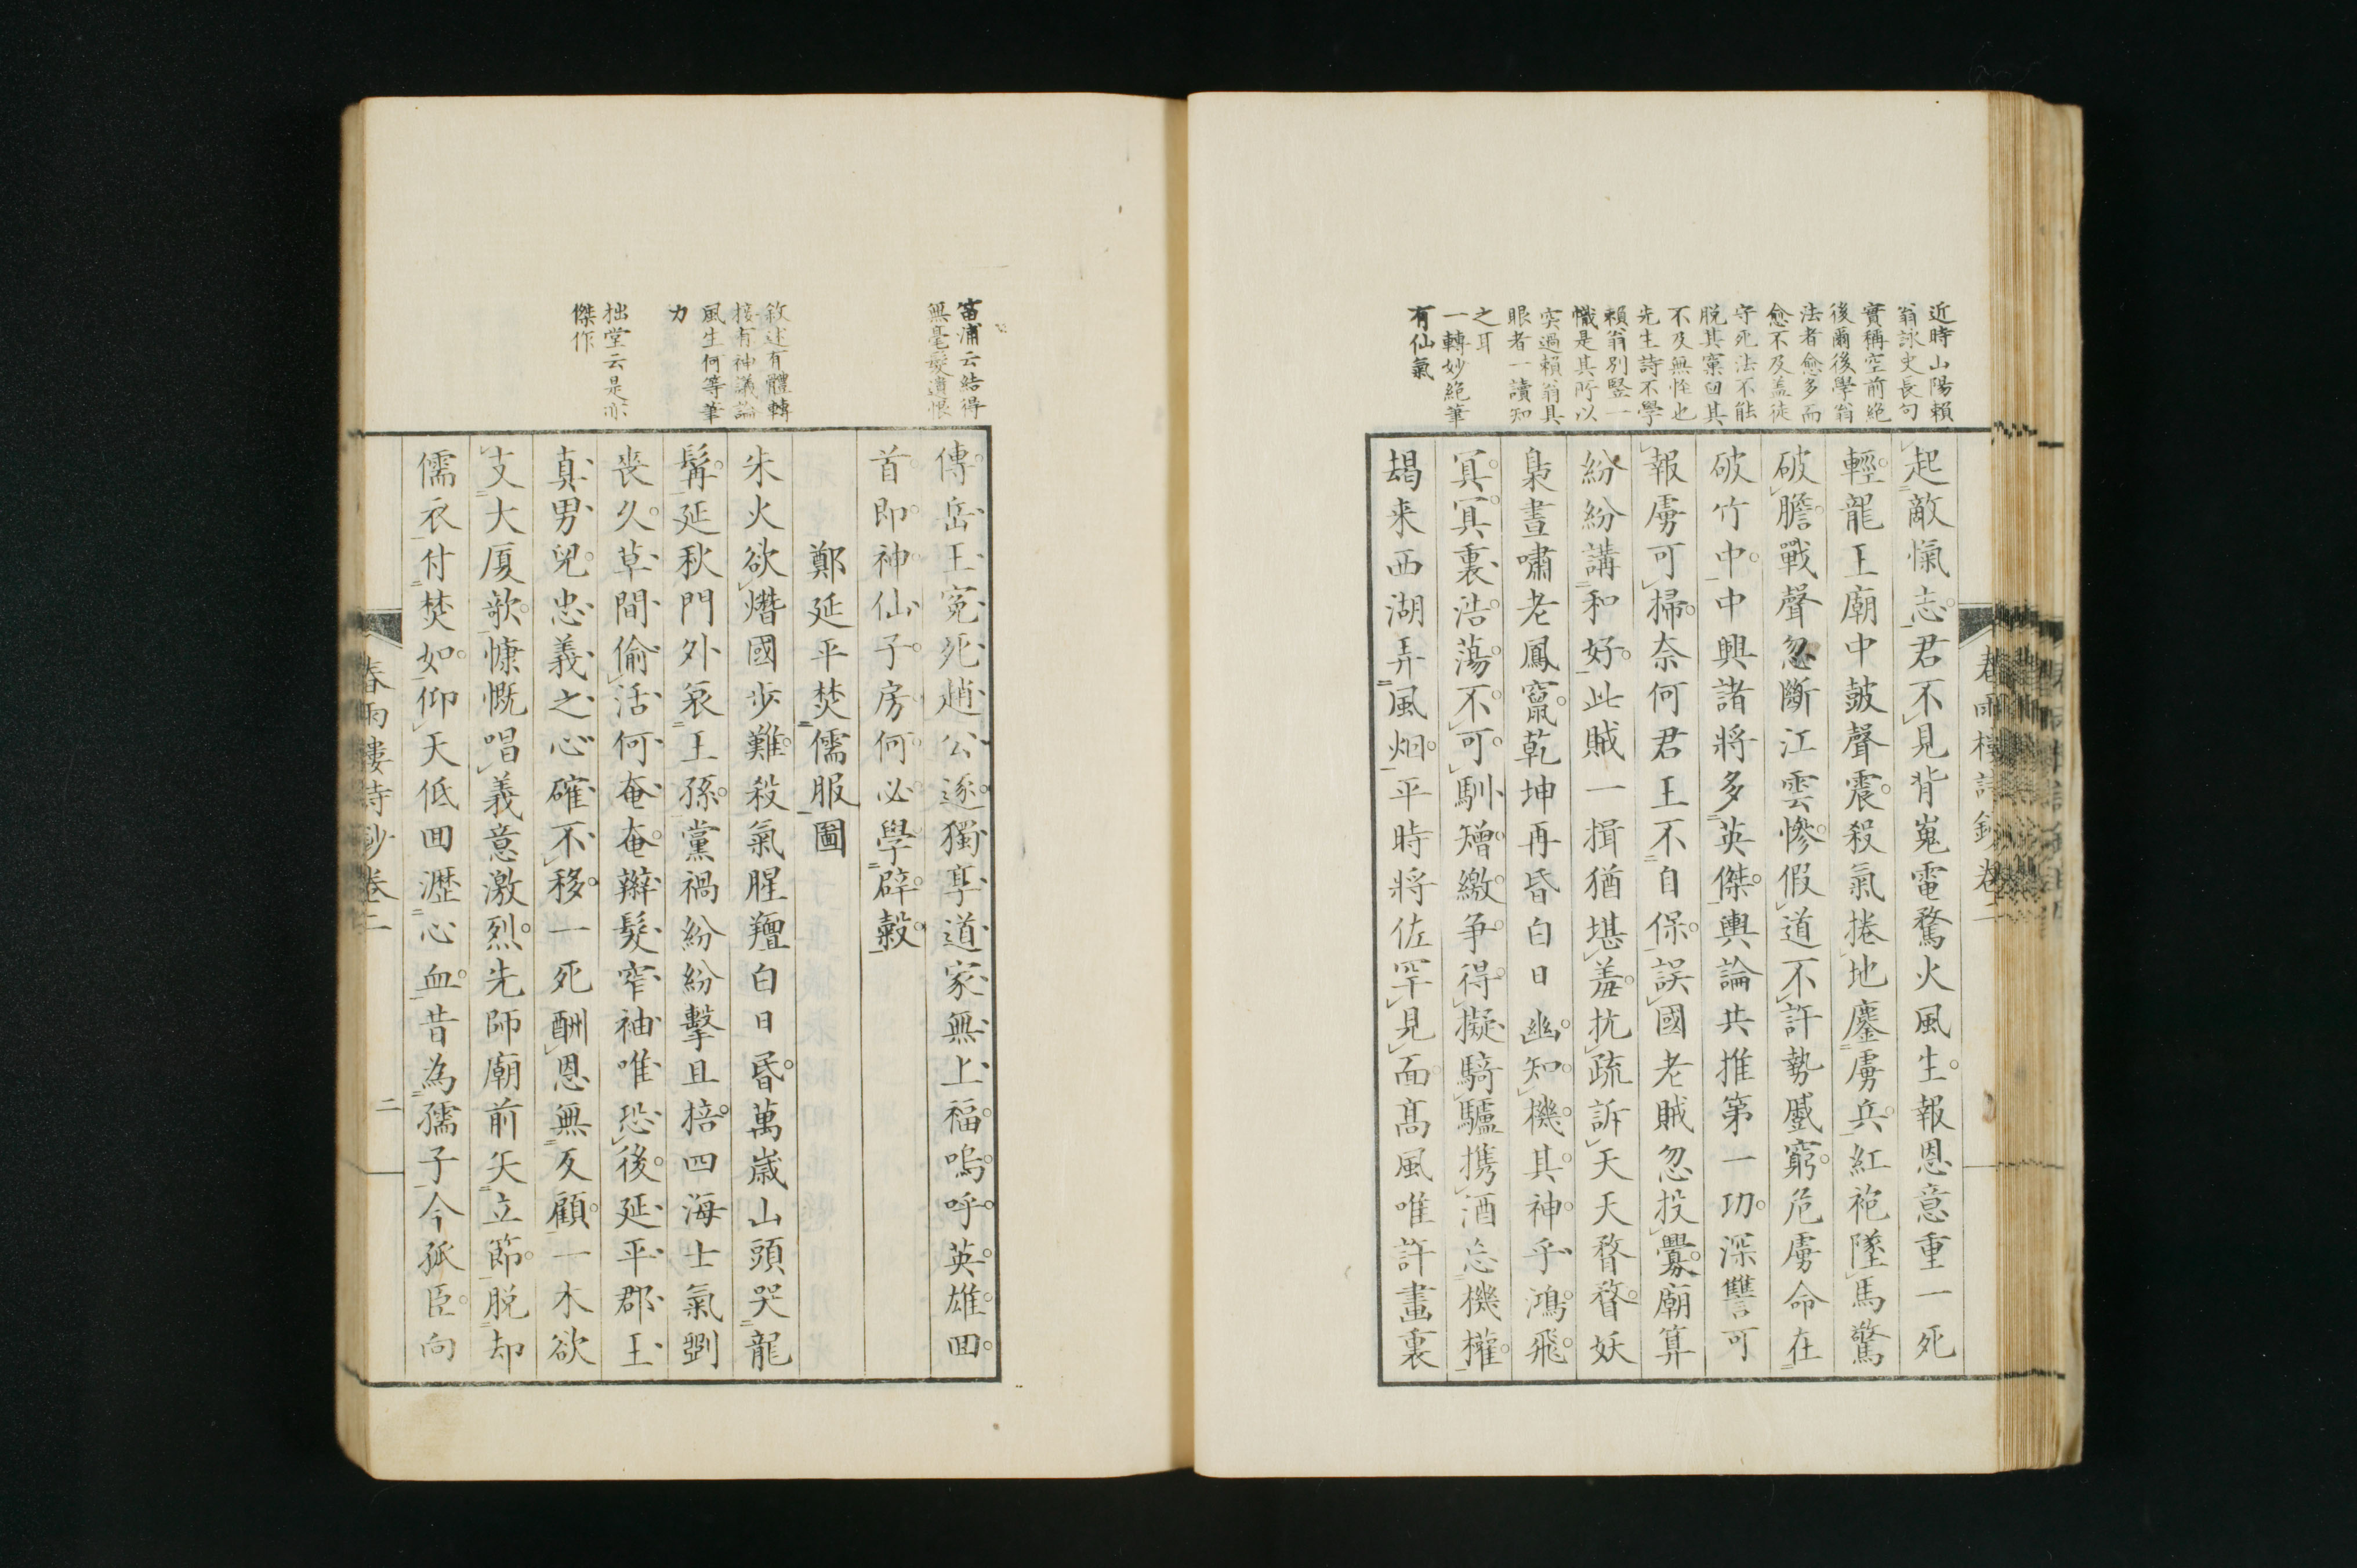 近時山陽賴
翁詠史長句
實稱空前絕
後爾後學翁
法者愈多而
愈不及蓋徒
守死法不能
脱其窠臼其
不及無怪也
先生詩不學
賴翁別竪一
幟是其所以
突過賴翁具
眼者一讀知
之耳
一轉妙絕筆
有仙氣
起敵愾志君不見背嵬電騖火風生報恩意重一死
輕龍王廟中鼓聲震殺氣捲地鏖虜兵紅袍墜馬驚
破膽戰聲忽斷江雲慘假道不許勢蹙窮危虜命在
破竹中中興諸將多英傑輿論共推第一功深讐可
報虜可掃奈何君王不自保誤國老賊忽投釁廟算
紛紛講和好此賊一揖猶堪羞抗疏訴天天瞀瞀妖
梟晝嘯老鳳竄乾坤再昏白日幽知機其神乎鴻飛
冥冥裏浩蕩不可馴矰繳争得擬騎驢携酒忘機權
朅来西湖弄風烟平時將佐罕見面髙風唯許畫裏
春雨樓詩鈔卷二
笛浦云結得
無毫髮遺恨
敘述有體轉
接有神議論
風生何等筆
力
拙堂云是亦
傑作
傳岳王寃死趙公逐獨享道家無上福嗚呼英雄回
首即神仙子房何必學辟穀
鄭延平焚儒服圖
朱火欲熸國步難殺氣腥羶白日昏萬歳山頭哭龍
髯延秋門外哀王孫黨禍紛紛擊且掊四海士氣剄
喪久草間偷活何奄奄辮髮窄袖唯恐後延平郡王
真男兒忠義之心確不移一死酬恩無反顧一木欲
支大厦欹慷慨唱義意激烈先師廟前矢立節脱却
儒衣付焚如仰天低回瀝心血昔為孺子今孤臣向
春雨樓詩鈔卷二
二